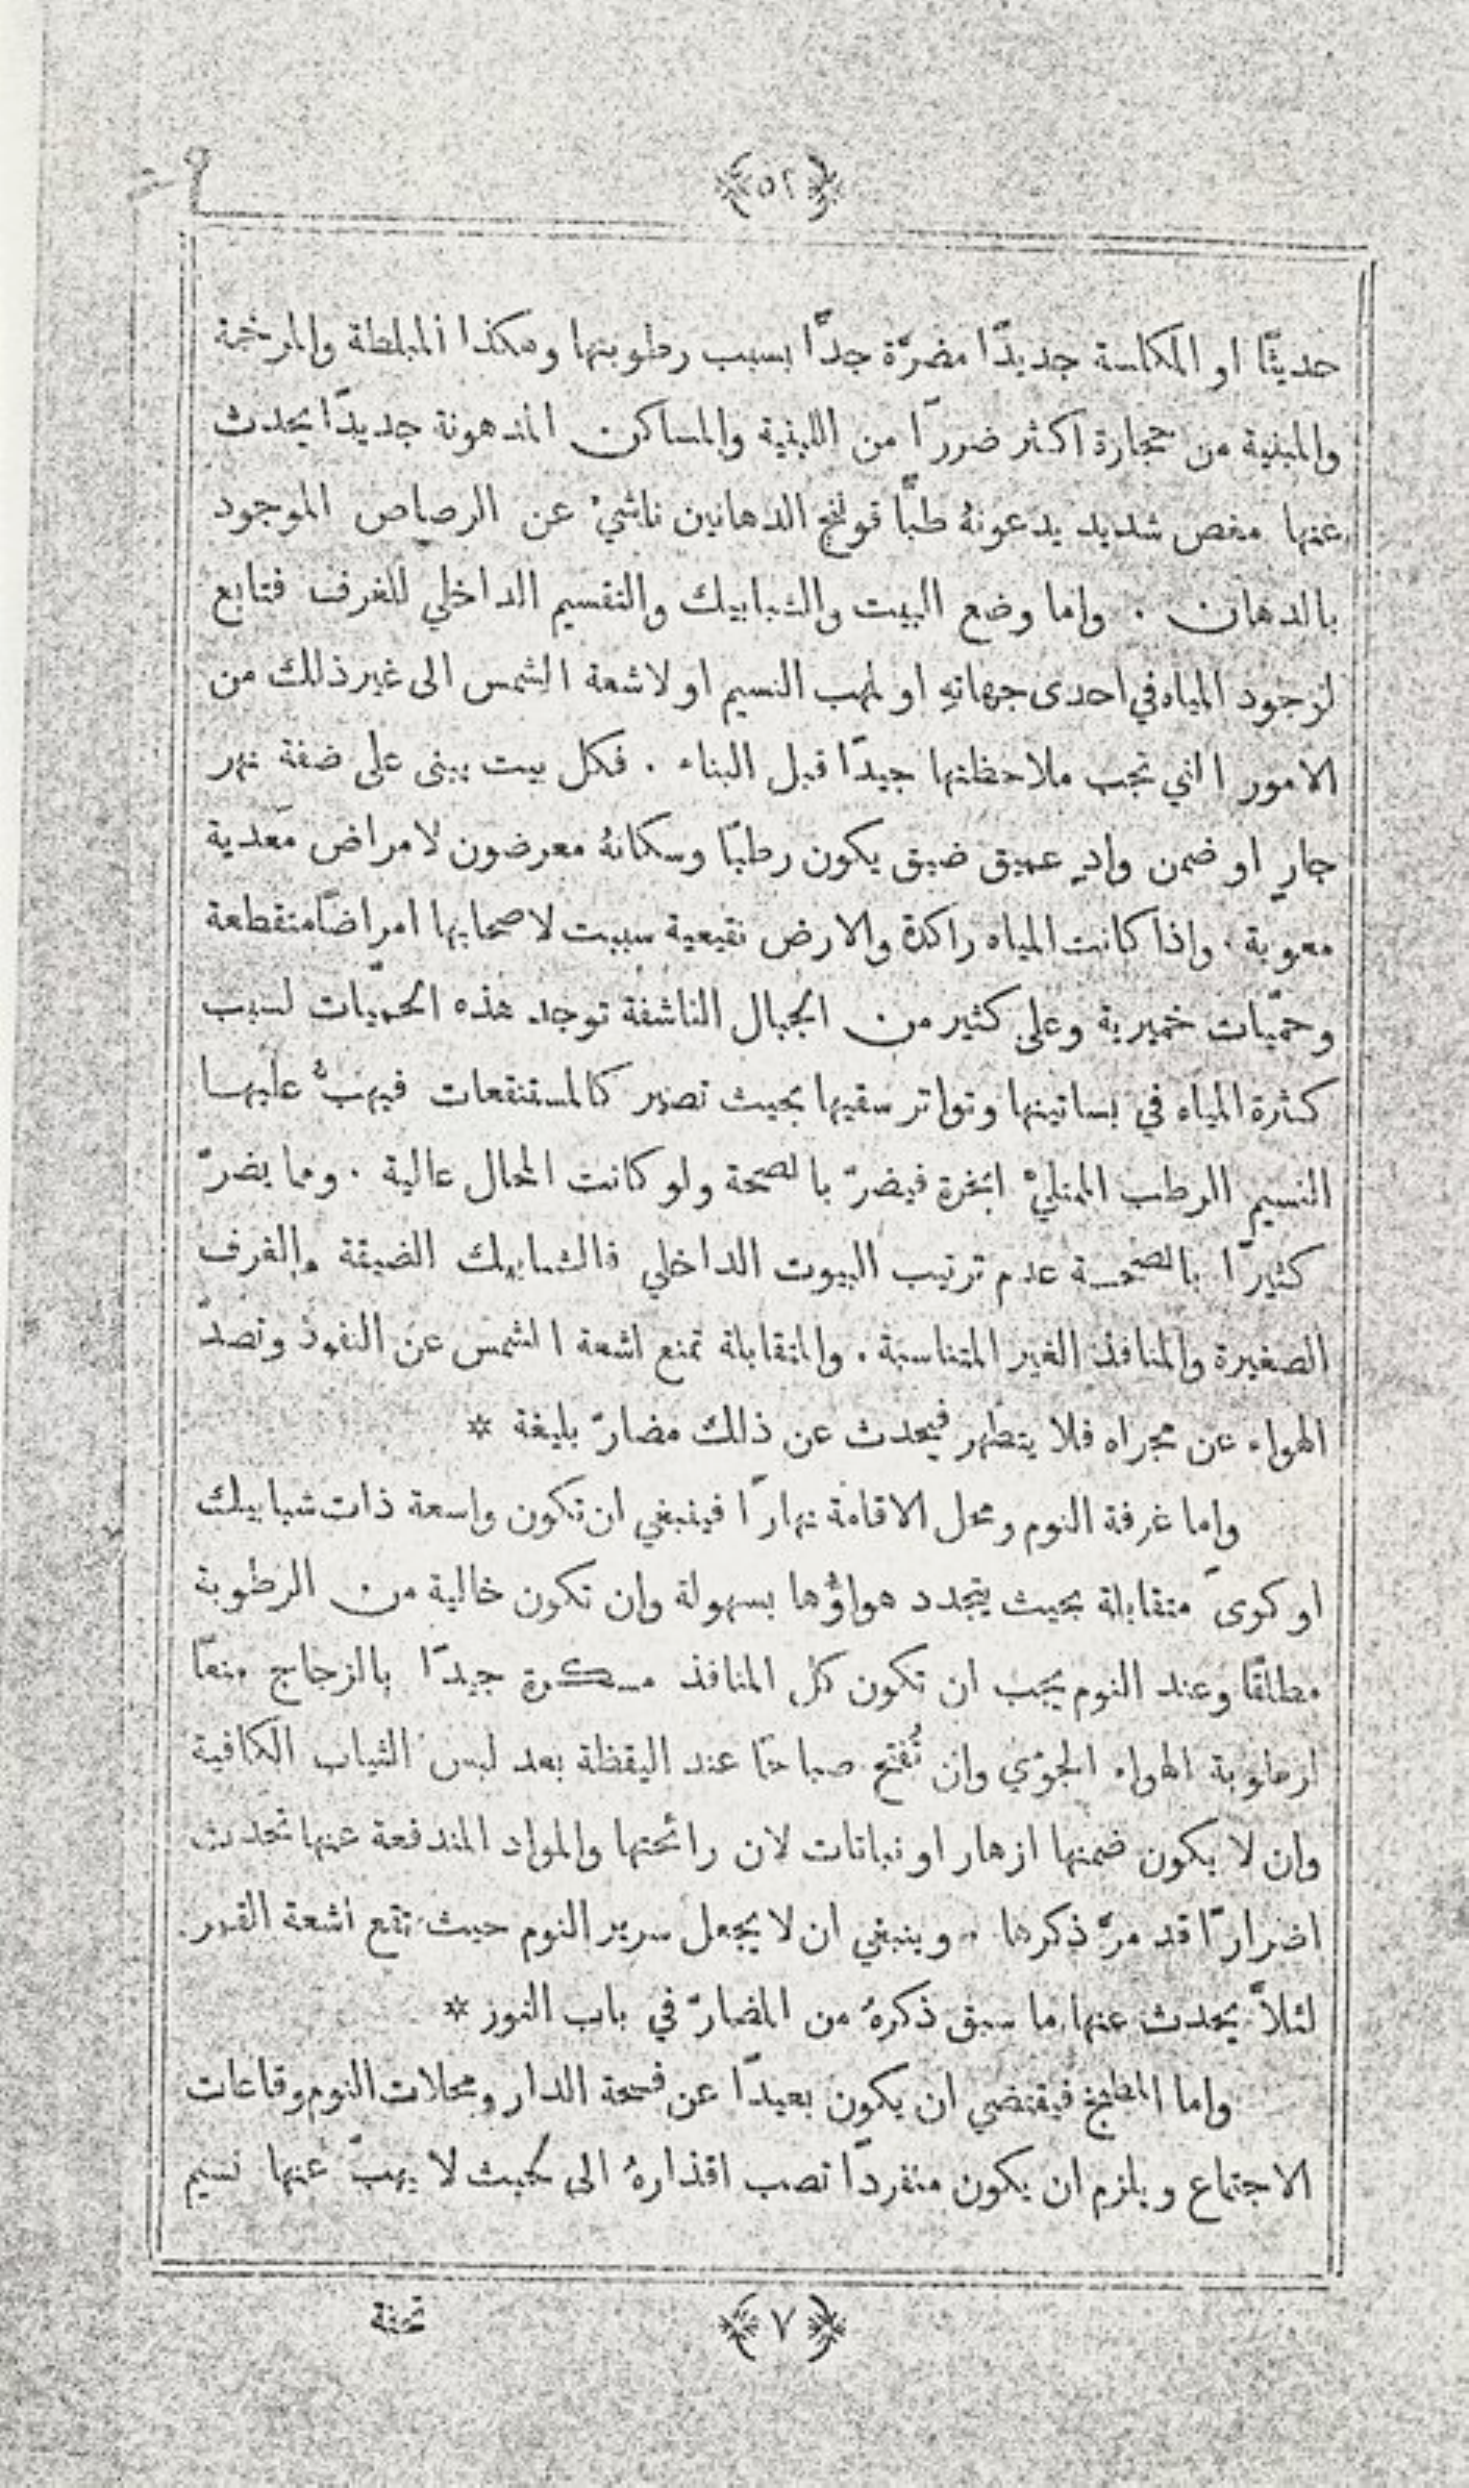 ﴿٥٢﴾
حديثًا او المكلسة جديدًا مضرّة جدًّا بسبب رطوبتها وهكذا المبلطة والمرخمة
والمبنية من حجارة اكثر ضررًا من اللبنية والمساكن المدهونة جديدًا يحدث
عنها مغص شديد يدعونهُ طبًّا قولنج الدهانين ناشيءٌ عن الرصاص الموجود
بالدهان . واما وضع البيت والشبابيك والتقسيم الداخلي للغرف فتابع
لوجود المياه في احدى جهاتهِ او لمهب النسيم او لاشعة الشمس الى غير ذلك من
الامور التي تجب ملاحظتها جيدًا قبل البناء . فكل بيت يبنى على ضفة نهر
جارٍ او ضمن وادٍ عميق ضيق يكون رطبًا وسكانهُ معرضون لامراض مَعدية
معوية . واذا كانت المياه راكدة والارض نقيعية سببت لاصحابها امراضًا متقطعة
وحمّيات خميرية وعلى كثير من الجبال الناشفة توجد هذه الحمّيات لسبب
كثرة المياه في بساتينها وتواتر سقيها بحيث تصير كالمستنقعات فيهبُّ عليها
النسيم الرطب الممتليْ ابخرة فيضرّ بالصحة ولو كانت المحال عالية . ومما يضرّ
كثيرًا بالصحة عدم ترتيب البيوت الداخلي فالشبابيك الضيقة والغرف
الصغيرة والمنافذ الغير المتناسبة . والمتقابلة تمنع اشعة الشمس عن النفوذ وتصدّ
الهواء عن مجراه فلا يتطهر فيحدث عن ذلك مضارّ بليغة *
واما غرفة النوم ومحل الاقامة نهارًا فينبغي ان تكون واسعة ذات شبابيك
او كوىً متقابلة بحيث يتجدد هواؤها بسهولة وان تكون خالية من الرطوبة
مطلقًا وعند النوم يجب ان تكون كل المنافذ مسكرة جيدًا بالزجاج منعًا
لرطوبة الهواء الجوّي وان تُفتح صباحًا عند اليقظة بعد لبس الثياب الكافية
وان لا يكون ضمنها ازهار او نباتات لان رائحتها والمواد المندفعة عنها تحدث
اضرارًا قد مرَّ ذكرها . وينبغي ان لا يجعل سرير النوم حيث تقع اشعة القمر
لئلاَّ يحدث عنها ما سبق ذكرهُ من المضارّ في باب النور *
واما المطبخ فيقتضي ان يكون بعيدًا عن فسحة الدار ومحلات النوم وقاعات
الاجتماع ويلزم ان يكون منفردًا تصب اقذارهُ الى حيث لا يهبّ عنها نسيم
﴿٧﴾ تحفة